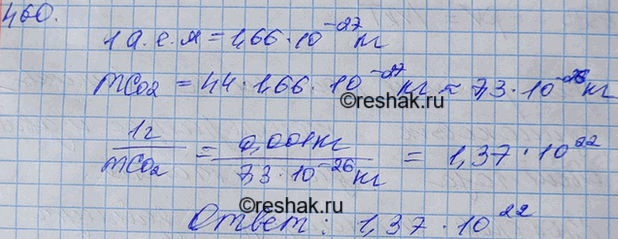 460.
1 а.е.м = 1,66·10⁻²⁷ кг
mCO2 = 44·1,66·10⁻²⁷ кг ≈ 7,3·10⁻²⁶ кг
©reshak.ru
1г / mCO2 = 0,001кг / 7,3·10⁻²⁶ кг = 1,37·10²²
©reshak.ru
Ответ: 1,37·10²²